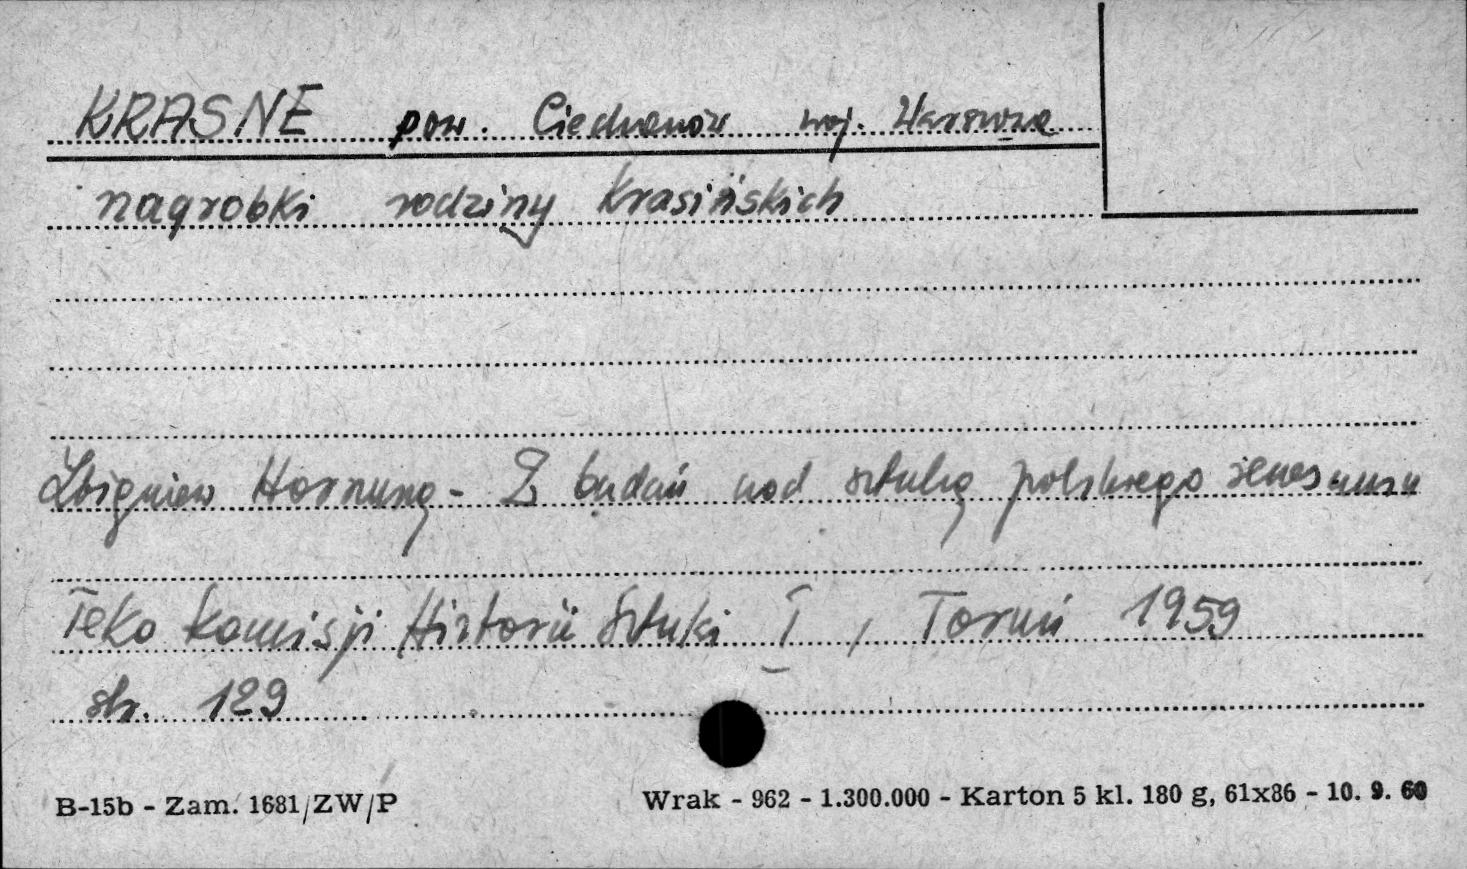 KRASNE pow. Ciechanów woj. Warszawa
nagrobki rodziny Krasińskich
Zbigniew Hornung - Z badań nad sztuką polskiego renesansu
Teka Komisji Historii Sztuki I, Toruń 1959
str. 129
B-15b - Zam. 1681/ZW/P
Wrak - 962 - 1.300.000 - Karton 5 kl. 180 g, 61x86 - 10. 9. 60